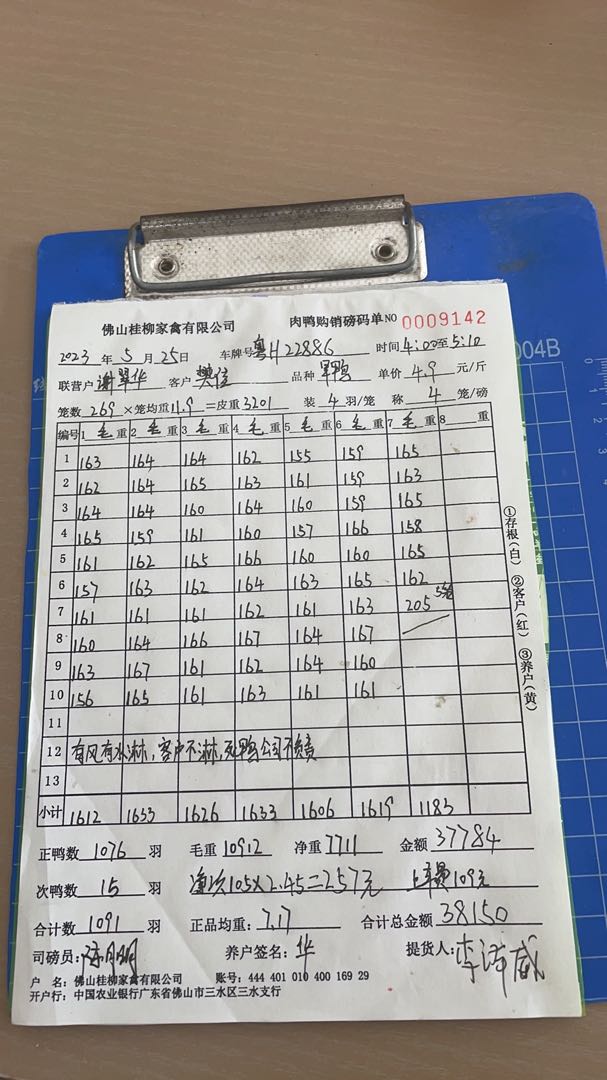 佛山桂柳家禽有限公司 肉鸭购销磅码单 NO 0009142
2023 年 5 月 25 日 车牌号 粤H22886 时间 4:00至5:10
联营户 谢翠华 客户 樊信 品种 单价 4.9 元/斤
笼数 269 ×笼均重 11.9 =皮重 3201 装 4 羽/笼 称 4 笼/磅
编号 1 毛 重 2 毛 重 3 毛 重 4 毛 重 5 毛 重 6 毛 重 7 毛 重 8 重
1 163 164 164 162 155 159 165
2 162 164 165 163 161 159 163
3 164 164 160 164 160 159 165
4 165 159 161 160 157 166 158
5 161 162 165 166 160 160 165
6 157 163 162 164 163 165 162
7 161 161 161 162 161 163 205 5笼
8 160 164 166 167 164 167
9 163 167 161 162 164 160
10 156 165 161 163 161 161
11
12 有风有水淋,客户不淋,死鸭公司不负责
13
小计 1612 1633 1626 1633 1606 1619 1183
①存根(白) ②客户(红) ③养户(黄)
正鸭数 1076 羽 毛重 10912 净重 7711 金额 37784
次鸭数 15 羽 105×2.45=257元 上车费109元
合计数 1091 羽 正品均重: 7.17 合计总金额 38150
司磅员: 养户签名: 华 提货人: 李沛威
户 名: 佛山桂柳家禽有限公司 账号: 444 401 010 400 169 29
开户行: 中国农业银行广东省佛山市三水区三水支行
004B